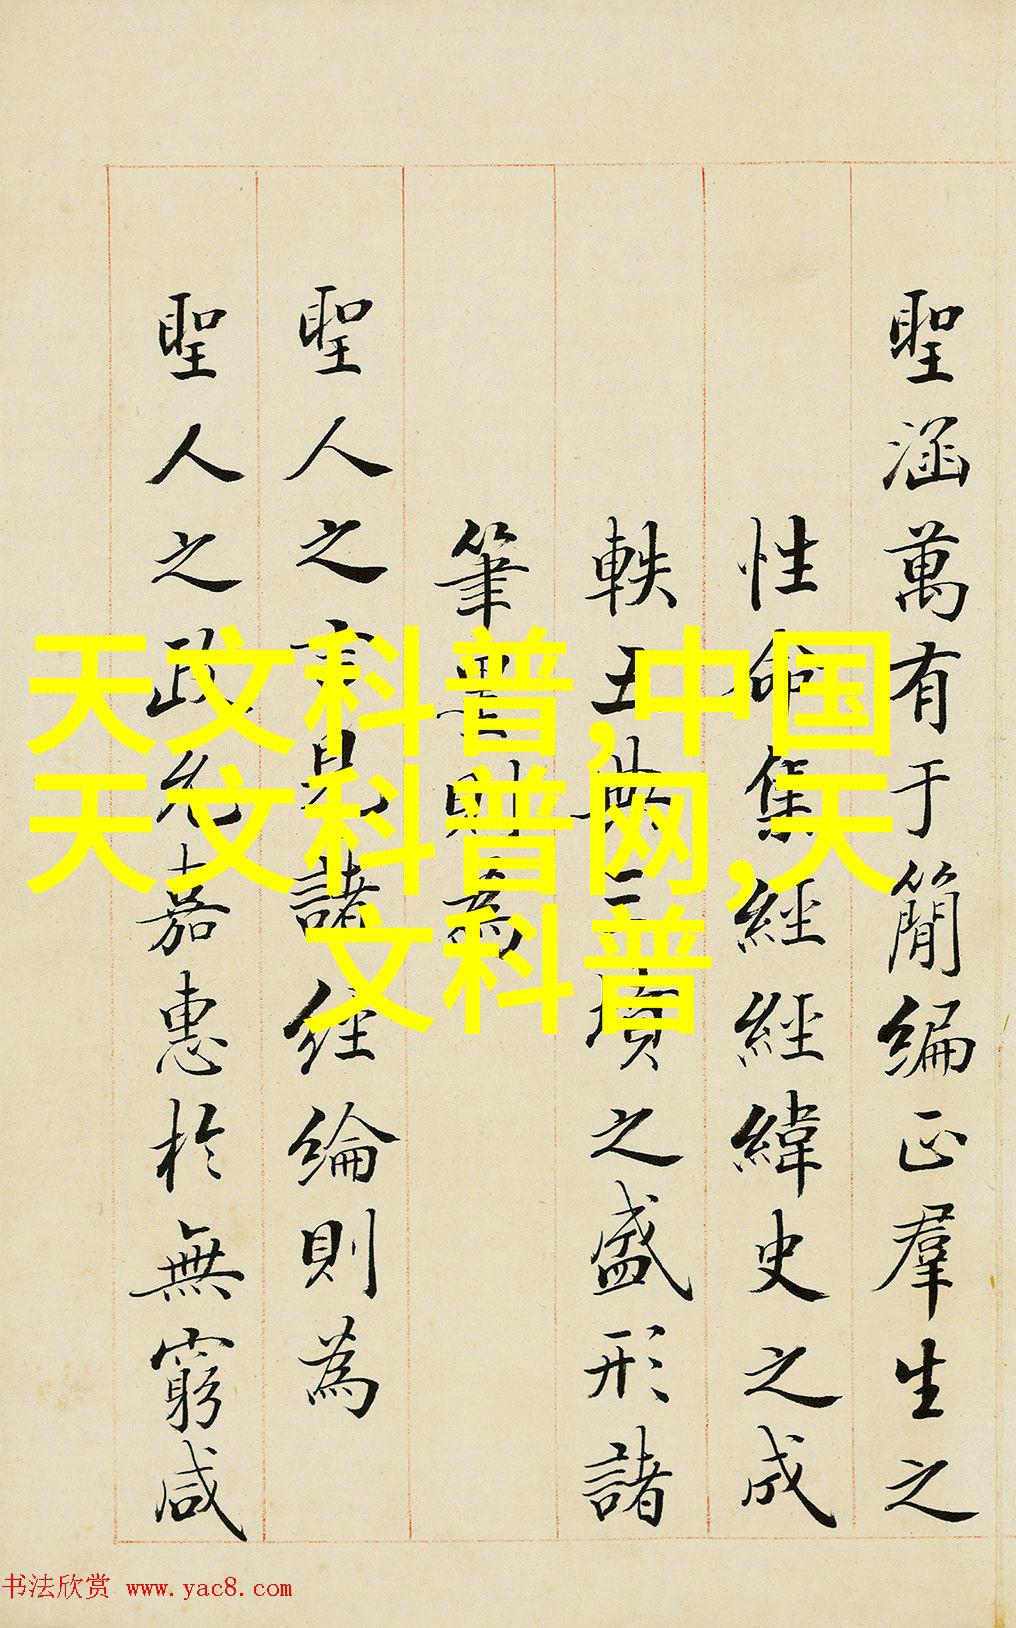 聖涵萬有于簡編正羣生之
性命集經經緯史之成
軼五典三墳之盛形諸
筆墨則為
聖人之言見諸經綸則為
聖人之政允嘉惠於無窮咸
天文科普,中国
天文科普网,天
文科普
书法欣赏 www.yac8.com